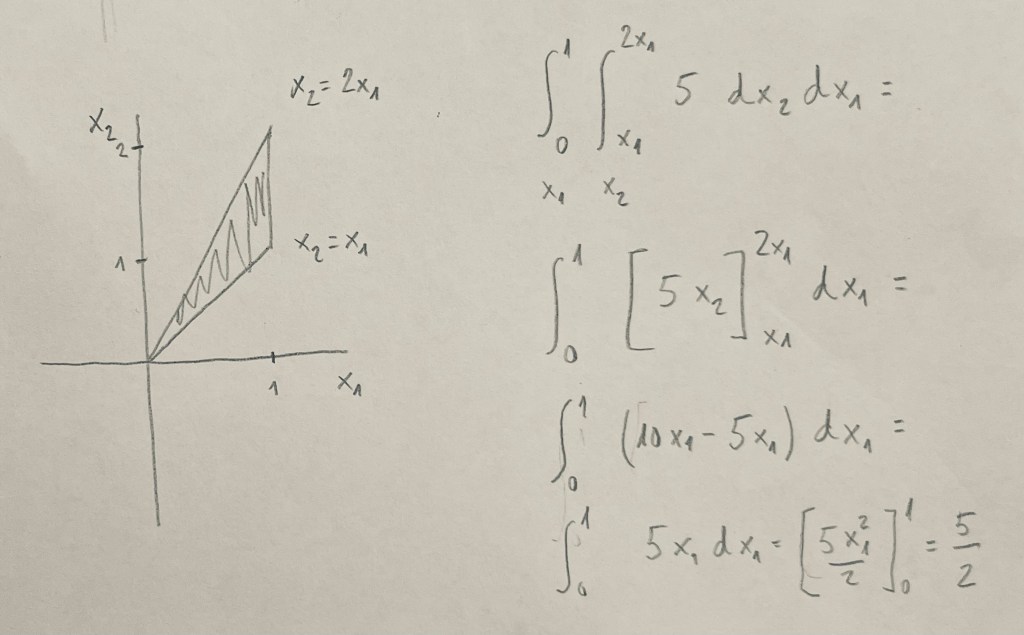 x₂ = 2x₁
x₂
2
x₂ = x₁
1
1
x₁
∫₀¹ ∫ₓ₁^2x₁ 5 dx₂ dx₁ =
x₁ x₂
∫₀¹ [5x₂]ₓ₁^2x₁ dx₁ =
∫₀¹ (10x₁ - 5x₁) dx₁ =
∫₀¹ 5x₁ dx₁ = [5x₁²/2]₀¹ = 5/2